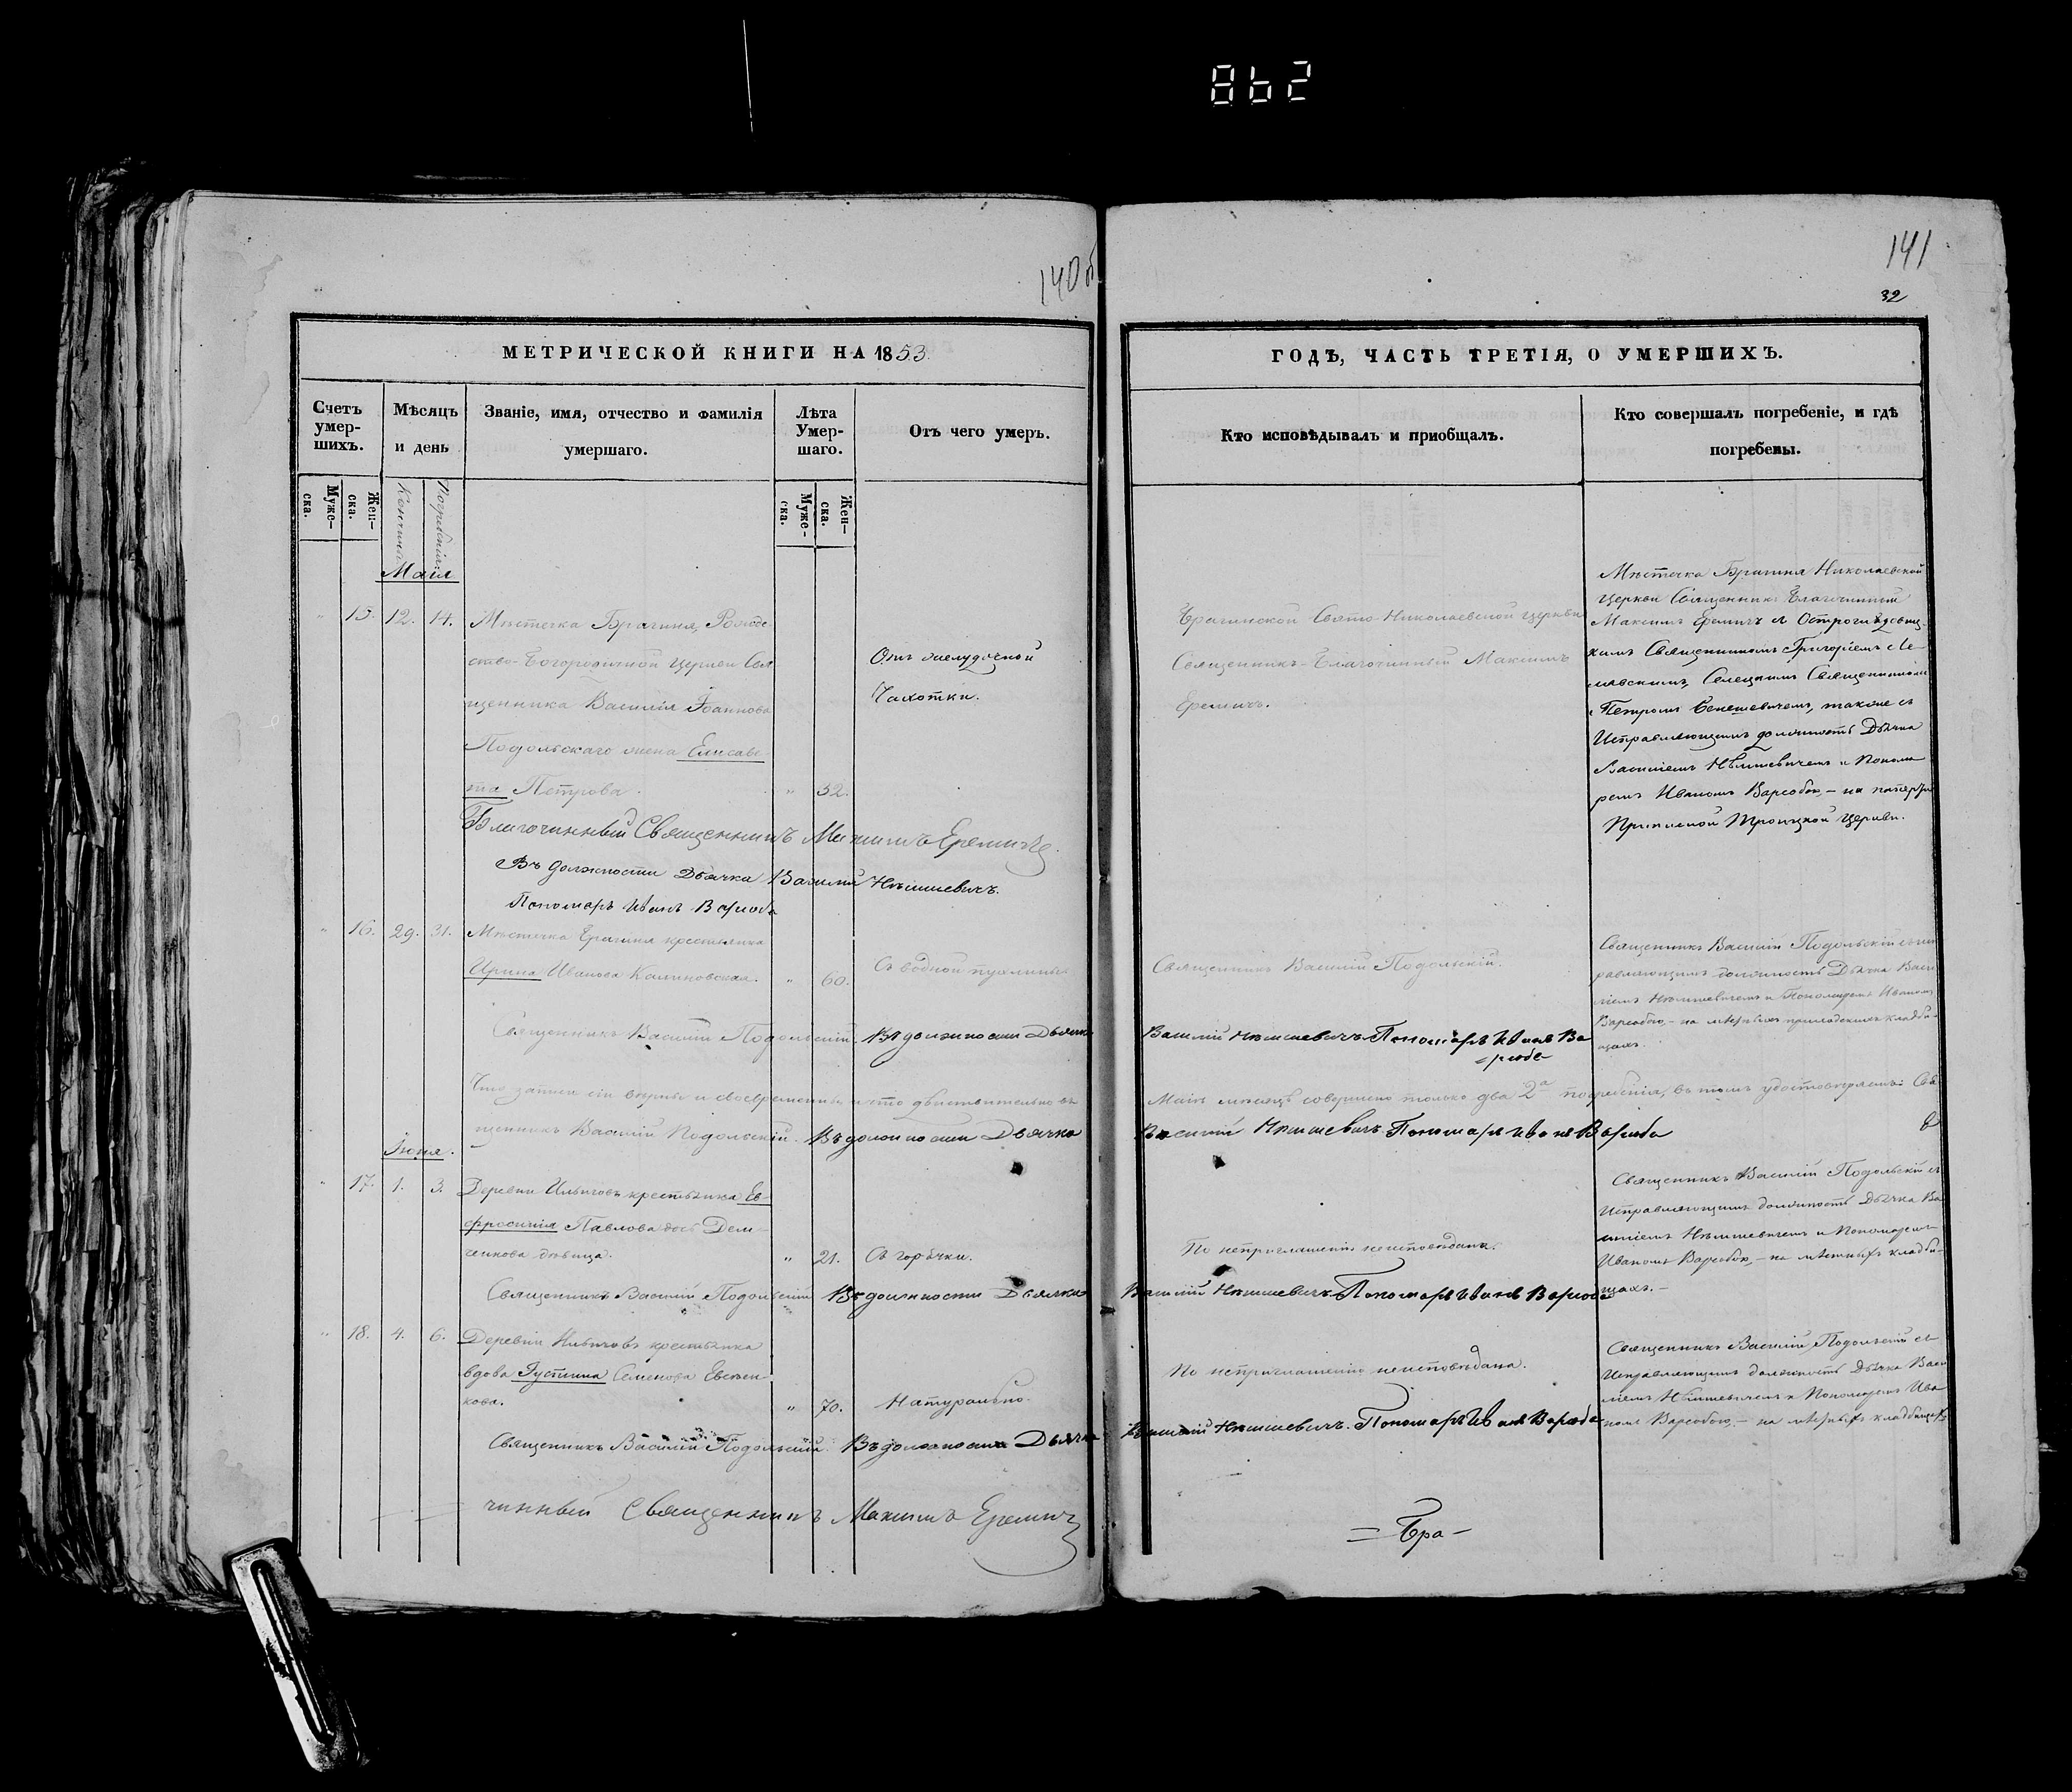 862
140 об
141
32
МЕТРИЧЕСКОЙ КНИГИ НА 1853
ГОДЪ, ЧАСТЬ ТРЕТІЯ, О УМЕРШИХЪ.
Счетъ умер-
шихъ.
Мѣсяцъ
и день
Званіе, имя, отчество и фамилія
умершаго.
Лѣта
Умер-
шаго.
Отъ чего умеръ.
Кто исповѣдывалъ и пріобщалъ.
Кто совершалъ погребеніе, и гдѣ
погребены.
Муже-
ска.
Жен-
ска.
Кончина
Погребенія
Муже-
ска.
Жен-
ска.
Маія
" 15. 12. 14.
Мѣстечка Брагиня, Рожде-
ство-Богородичной церкви Свя
щенника Василія Іоаннова
Подольскаго жена Елисаве-
та Петрова.
" 32.
Отъ желудочной
Чахотки.
Брагинской Свято-Николаевской церкви
Священникъ-Благочинный Максимъ
Еремичъ.
Мѣстечка Брагиня Николаевской
церкви Священникъ Благочинный
Максимъ Еремичъ съ
кимъ Священникомъ Григоріемъ
Селецкимъ Священникомъ
Петромъ Бенешевичемъ, также съ
Исправляющимъ должность Дьячка
Василіемъ Нѣмшевичемъ и Понома
ремъ Иваномъ Варсобою, – на
Приписной Троицкой церкви.
Благочинный Священникъ Максимъ Еремичъ.
Въ должности Дьячка Василій Нѣмшевичъ.
Пономарь Иванъ Варсоба
" 16. 29. 31.
Мѣстечка Брагиня крестьянка
Ирина Иванова Калиновская.
" 60.
Съ водной пухлины
Священникъ Василій Подольскій.
Священникъ Василій Подольскій съ ис
равляющимъ должность Дьячка Васи
ліемъ Нѣмшевичемъ и Пономаремъ Иваномъ
Варсобою, – на мѣстныхъ приходскихъ кладби-
щахъ.
Священникъ Василій Подольскій. Въ должности Дьячка
Василій Нѣмшевичъ Пономарь Иванъ Ва
=рсоба
Что записи сіи вѣрны и своевременны, и что дѣйствительно въ
Маіѣ мѣсяцѣ совершено только два 2а погребенія, въ томъ удостовѣряемъ: Свя
щенникъ Василій Подольскій. Въ должности Дьячка
Василій Нѣмшевичъ Пономарь Иванъ Варсоба
Іюня.
" 17. 1. 3.
Деревни Ильичовъ крестьянка Ев-
фросинія Павлова дочь Дем-
ченкова дѣвица.
" 21.
Съ горячки.
По неприглашенію неисповѣдана.
Священникъ Василій Подольскій съ
Исправляющимъ должность Дьячка Ва
силіемъ Нѣмшевичемъ и Пономаремъ
Иваномъ Варсобою, – на мѣстныхъ кладби-
щахъ. –
Священникъ Василій Подольскій Въ должности Дьячка
Василій Нѣмшевичъ Пономарь Иванъ Варсоба
" 18. 4. 6.
Деревни Ильичовъ крестьянка
вдова Іустина Семенова Евсеен-
кова.
" 70.
Натурально.
По неприглашенію неисповѣдана.
Священникъ Василій Подольскій съ
Исправляющимъ должность Дьячка Васи
ліемъ Нѣмшевичемъ и Пономаремъ Ива
номъ Варсобою, – на мѣстныхъ кладбищахъ
Священникъ Василій Подольскій. Въ должности Дьячка
Василій Нѣмшевичъ. Пономарь Иванъ Варсоба
чинный Священникъ Максимъ Еремичъ
= Бра –